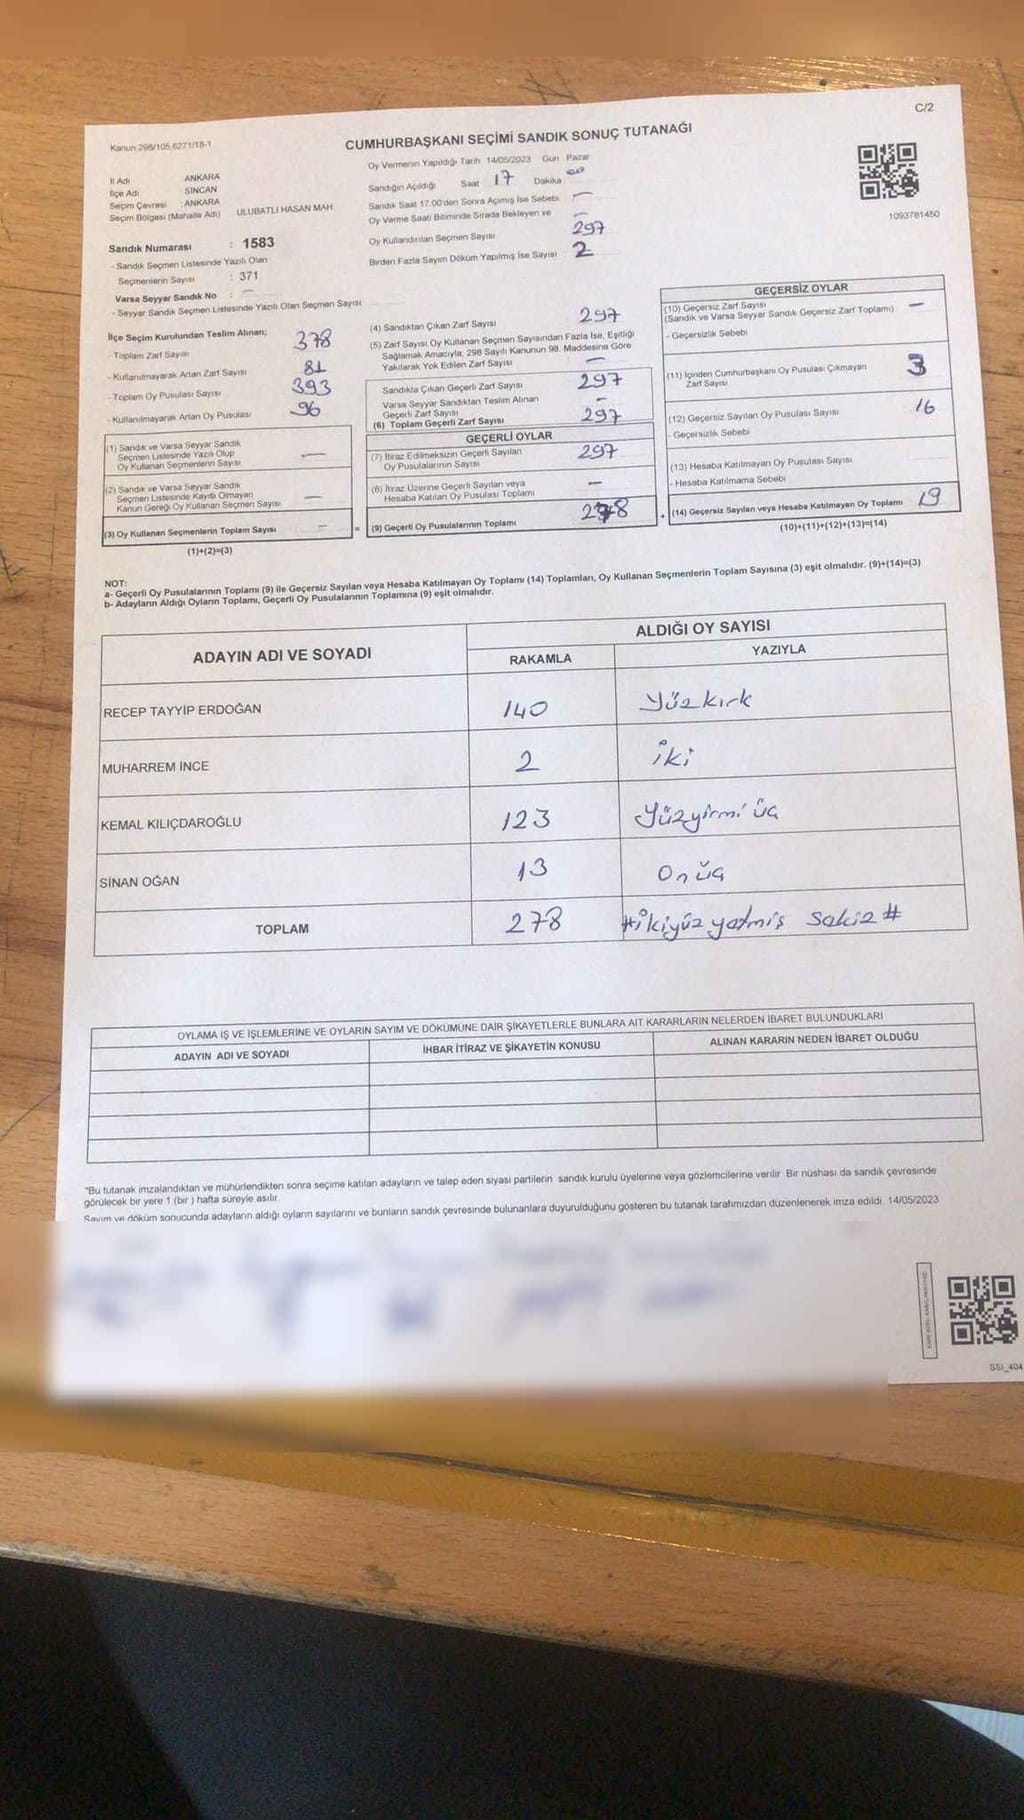 C/2
Kanun 298/105,6271/18-1
CUMHURBAŞKANI SEÇİMİ SANDIK SONUÇ TUTANAĞI
Oy Vermenin Yapıldığı Tarih 14/05/2023 Gün Pazar
İl Adı ANKARA
İlçe Adı SİNCAN
Seçim Çevresi : ANKARA
Seçim Bölgesi (Mahalle Adı) ULUBATLI HASAN MAH
Sandık Numarası : 1583
- Sandık Seçmen Listesinde Yazılı Olan
Seçmenlerin Sayısı : 371
Varsa Seyyar Sandık No : —
- Seyyar Sandık Seçmen Listesinde Yazılı Olan Seçmen Sayısı
Sandığın Açıldığı Saat 17 Dakika 00
Sandık Saat 17.00'den Sonra Açımış İse Sebebi. —
Oy Verme Saati Bitiminde Sırada Bekleyen ve —
Oy Kullandırılan Seçmen Sayısı 297
Birden Fazla Sayım Döküm Yapılmış İse Sayısı 2
1093781450
İlçe Seçim Kurulundan Teslim Alınan;
- Toplam Zarf Sayısı 378
- Kullanılmayarak Artan Zarf Sayısı 81
- Toplam Oy Pusulası Sayısı 393
- Kullanılmayarak Artan Oy Pusulası 96
(1) Sandık ve Varsa Seyyar Sandık
Seçmen Listesinde Yazılı Olup
Oy Kullanan Seçmenlerin Sayısı —
(2) Sandık ve Varsa Seyyar Sandık
Seçmen Listesinde Kayıtlı Olmayan
Kanun Gereği Oy Kullanan Seçmen Sayısı —
(3) Oy Kullanan Seçmenlerin Toplam Sayısı —
(1)+(2)=(3)
=
(4) Sandıktan Çıkan Zarf Sayısı 297
(5) Zarf Sayısı Oy Kullanan Seçmen Sayısından Fazla İse, Eşitliği
Sağlamak Amacıyla, 298 Sayılı Kanunun 98. Maddesine Göre
Yakılarak Yok Edilen Zarf Sayısı —
Sandıkta Çıkan Geçerli Zarf Sayısı 297
Varsa Seyyar Sandıktan Teslim Alınan
Geçerli Zarf Sayısı —
(6) Toplam Geçerli Zarf Sayısı 297
GEÇERLİ OYLAR
(7) İtiraz Edilmeksizin Geçerli Sayılan
Oy Pusulalarının Sayısı 297
(8) İtiraz Üzerine Geçerli Sayılan veya
Hesaba Katılan Oy Pusulası Toplamı —
(9) Geçerli Oy Pusulalarının Toplamı 278
+
GEÇERSİZ OYLAR
(10) Geçersiz Zarf Sayısı
(Sandık ve Varsa Seyyar Sandık Geçersiz Zarf Toplamı) —
- Geçersizlik Sebebi
(11) İçinden Cumhurbaşkanı Oy Pusulası Çıkmayan
Zarf Sayısı 3
(12) Geçersiz Sayılan Oy Pusulası Sayısı 16
- Geçersizlik Sebebi
(13) Hesaba Katılmayan Oy Pusulası Sayısı
- Hesaba Katılmama Sebebi
(14) Geçersiz Sayılan veya Hesaba Katılmayan Oy Toplamı 19
(10)+(11)+(12)+(13)=(14)
NOT:
a- Geçerli Oy Pusulalarının Toplamı (9) ile Geçersiz Sayılan veya Hesaba Katılmayan Oy Toplamı (14) Toplamları, Oy Kullanan Seçmenlerin Toplam Sayısına (3) eşit olmalıdır. (9)+(14)=(3)
b- Adayların Aldığı Oyların Toplamı, Geçerli Oy Pusulalarının Toplamına (9) eşit olmalıdır.
ADAYIN ADI VE SOYADI
ALDIĞI OY SAYISI
RAKAMLA YAZIYLA
RECEP TAYYİP ERDOĞAN 140 Yüzkırk
MUHARREM İNCE 2 iki
KEMAL KILIÇDAROĞLU 123 Yüzyirmi üç
SİNAN OĞAN 13 On üç
TOPLAM 278 #ikiyüz yetmiş sekiz#
OYLAMA İŞ VE İŞLEMLERİNE VE OYLARIN SAYIM VE DÖKÜMÜNE DAİR ŞİKAYETLERLE BUNLARA AİT KARARLARIN NELERDEN İBARET BULUNDUKLARI
ADAYIN ADI VE SOYADI İHBAR İTİRAZ VE ŞİKAYETİN KONUSU ALINAN KARARIN NEDEN İBARET OLDUĞU
*Bu tutanak imzalandıktan ve mühürlendikten sonra seçime katılan adayların ve talep eden siyasi partilerin sandık kurulu üyelerine veya gözlemcilerine verilir. Bir nüshası da sandık çevresinde
görülecek bir yere 1 (bir ) hafta süreyle asılır.
Sayım ve döküm sonucunda adayların aldığı oyların sayılarını ve bunların sandık çevresinde bulunanlara duyurulduğunu gösteren bu tutanak tarafımızdan düzenlenerek imza edildi. 14/05/2023
SSI_404